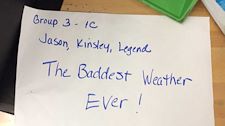 Group 3 - 1C
Jason, Kinsley, Legend
The Baddest Weather
Ever!